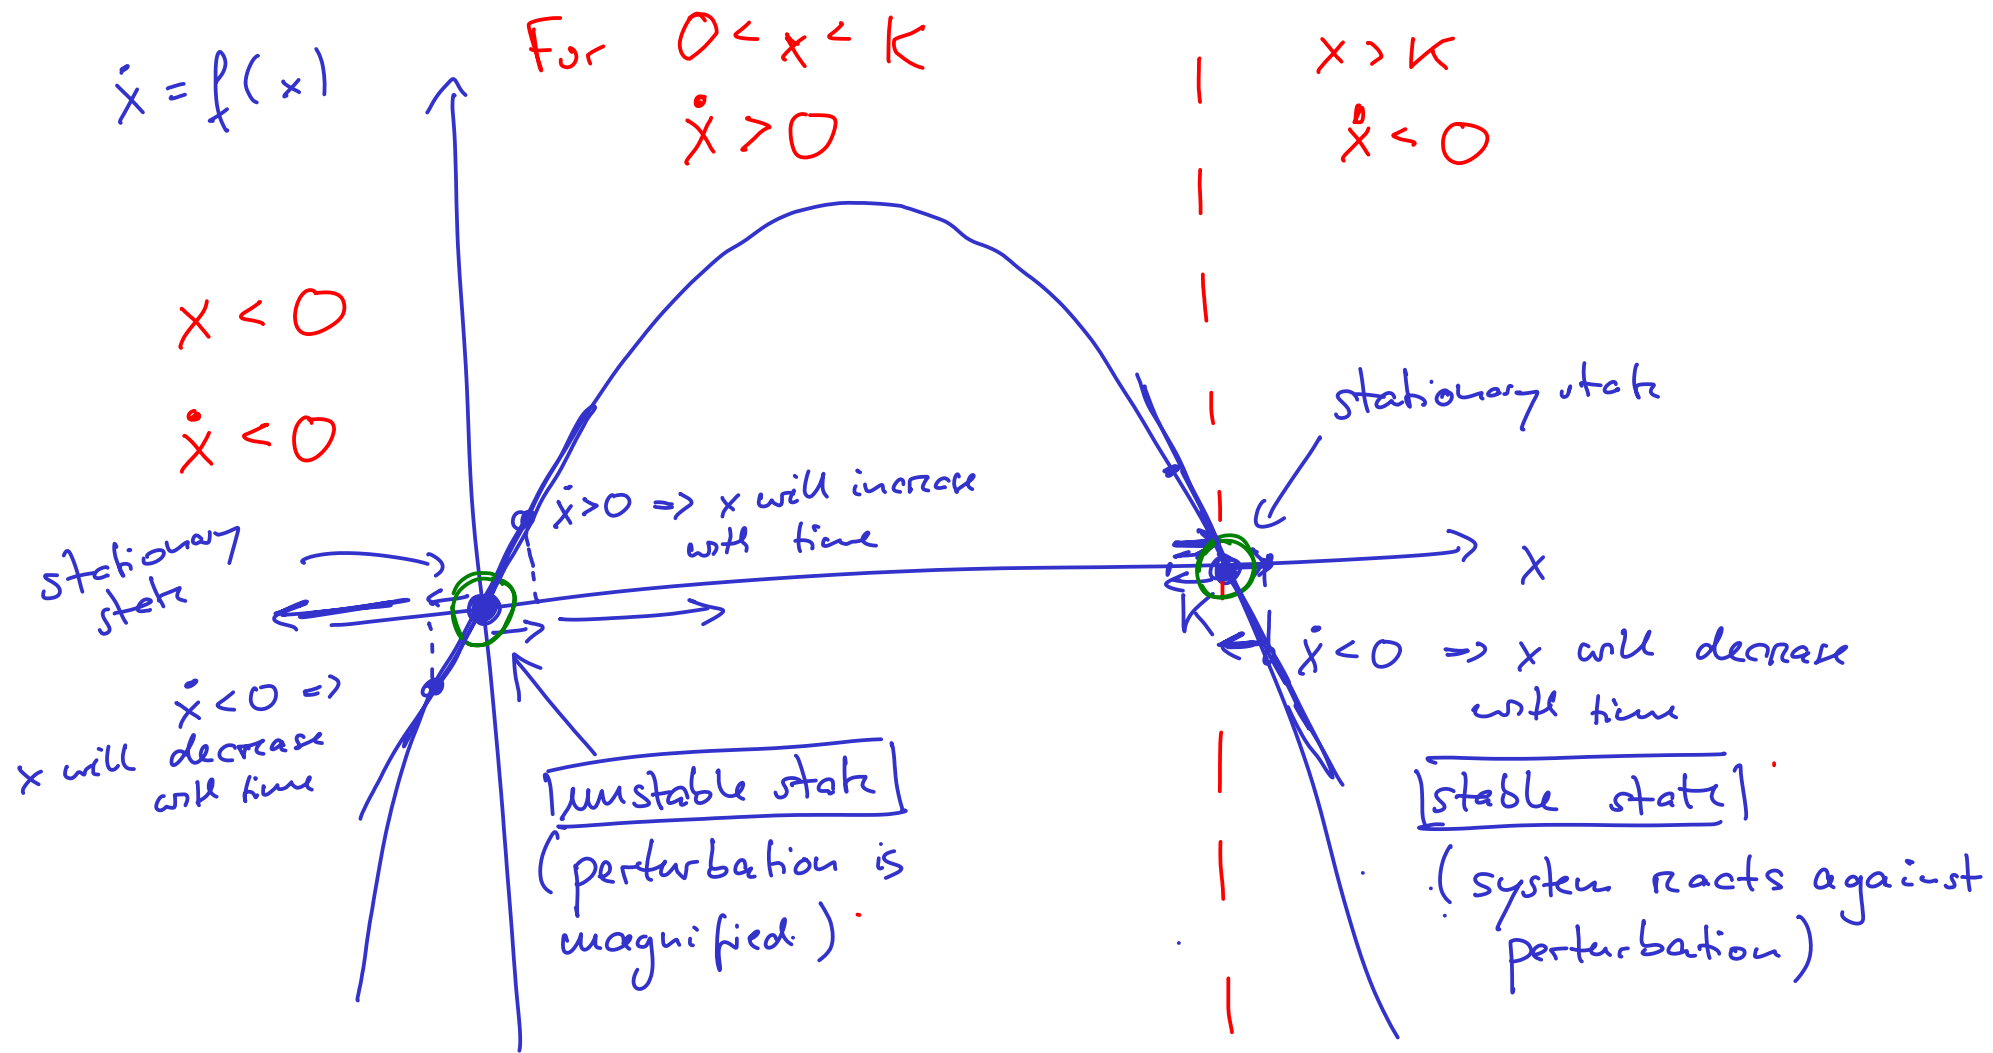 ẋ = f(x)
For 0 < x < K
ẋ > 0
x > K
ẋ < 0
x < 0
ẋ < 0
stationary state
ẋ>0 => x will increase
with time
stationary
state
x
K
ẋ<0 =>
x will decrease
with time
ẋ<0 => x will decrease
with time
unstable state
(perturbation is
magnified)
stable state
(system reacts against
perturbation)